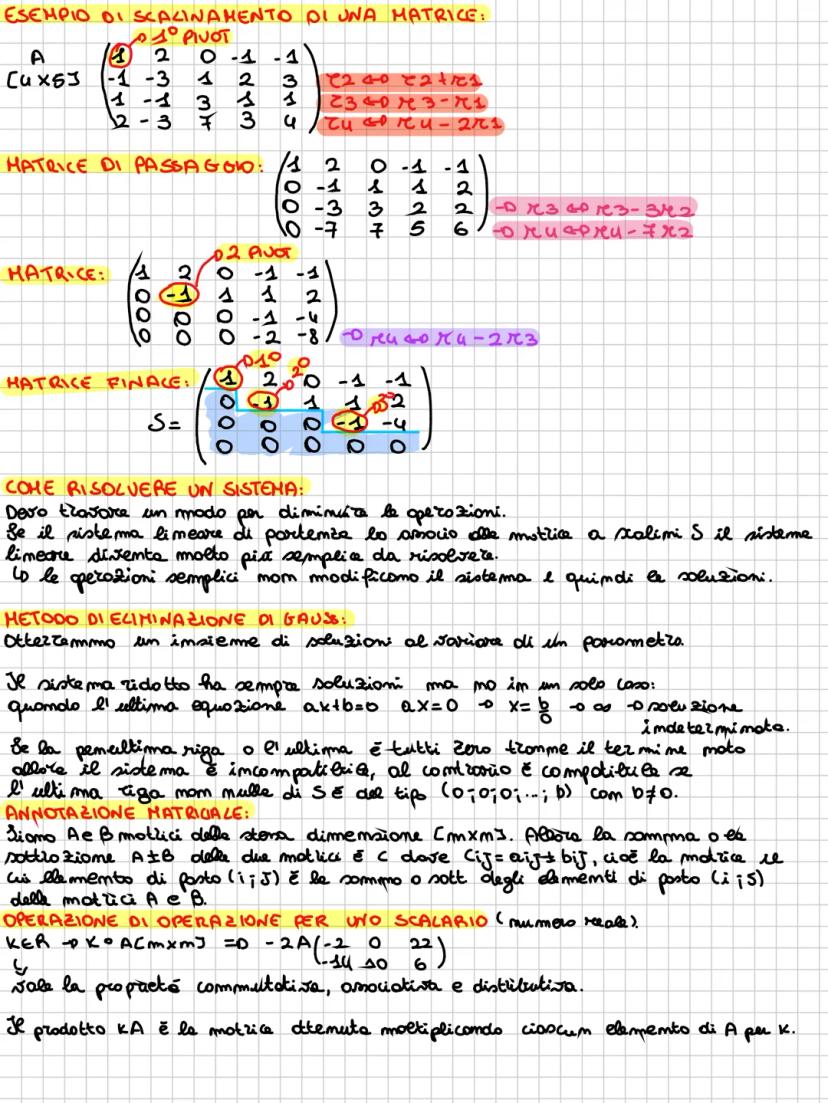 ESEMPIO DI SCALINAMENTO DI UNA MATRICE:
1° PIVOT
A
[4X5]
1 2 0 -1 -1
-1 -3 1 2 3 r2 ↔ r2+r1
1 -1 3 1 1 r3 ↔ r3-r1
2 -3 7 3 4 r4 ↔ r4-2r1
MATRICE DI PASSAGGIO:
1 2 0 -1 -1
0 -1 1 1 2
0 -3 3 2 2 → r3 ↔ r3-3r2
0 -7 7 5 6 → r4 ↔ r4-7r2
2 PIVOT
MATRICE:
1 2 0 -1 -1
0 -1 1 1 2
0 0 0 -1 -4
0 0 0 -2 -8 → r4 ↔ r4-2r3
MATRICE FINALE:
1° 2° 3°
S=
1 2 0 -1 -1
0 -1 1 1 2
0 0 0 -1 -4
0 0 0 0 0
COME RISOLVERE UN SISTEMA:
Devo trovare un modo per diminuire le operazioni.
Se il sistema lineare di partenza lo associo alla matrice a scalini S il sistema
lineare diventa molto più semplice da risolvere.
↳ le operazioni semplici non modificano il sistema e quindi le soluzioni.
METODO DI ELIMINAZIONE DI GAUSS:
Otterranno un insieme di soluzioni al variare di un parametro.
Il sistema ridotto ha sempre soluzioni ma no in un solo caso:
quando l'ultima equazione ax+b=0 ax=0 → x= b/0 → ∞ → soluzione
indeterminata.
Se la penultima riga o l'ultima è tutti zero tranne il termine noto
allora il sistema è incompatibile, al contrario è compatibile se
l'ultima riga non nulla di S è del tipo (0;0;0;...; b) con b≠0.
ANNOTAZIONE MATRICIALE:
Siano A e B matrici della stessa dimensione [mxn]. Allora la somma o la
sottrazione A±B delle due matrici è C dove Cij=aij±bij, cioè la matrice il
cui elemento di posto (i;j) è la somma o sott degli elementi di posto (i;j)
delle matrici A e B.
OPERAZIONE DI OPERAZIONE PER UNO SCALARIO (numero reale).
K∈R → K∘A[mxn] => -2A
-2 0 22
-14 10 6
↳
vale la proprietà commutativa, associativa e distributiva.
Il prodotto KA è la matrice ottenuta moltiplicando ciascun elemento di A per K.